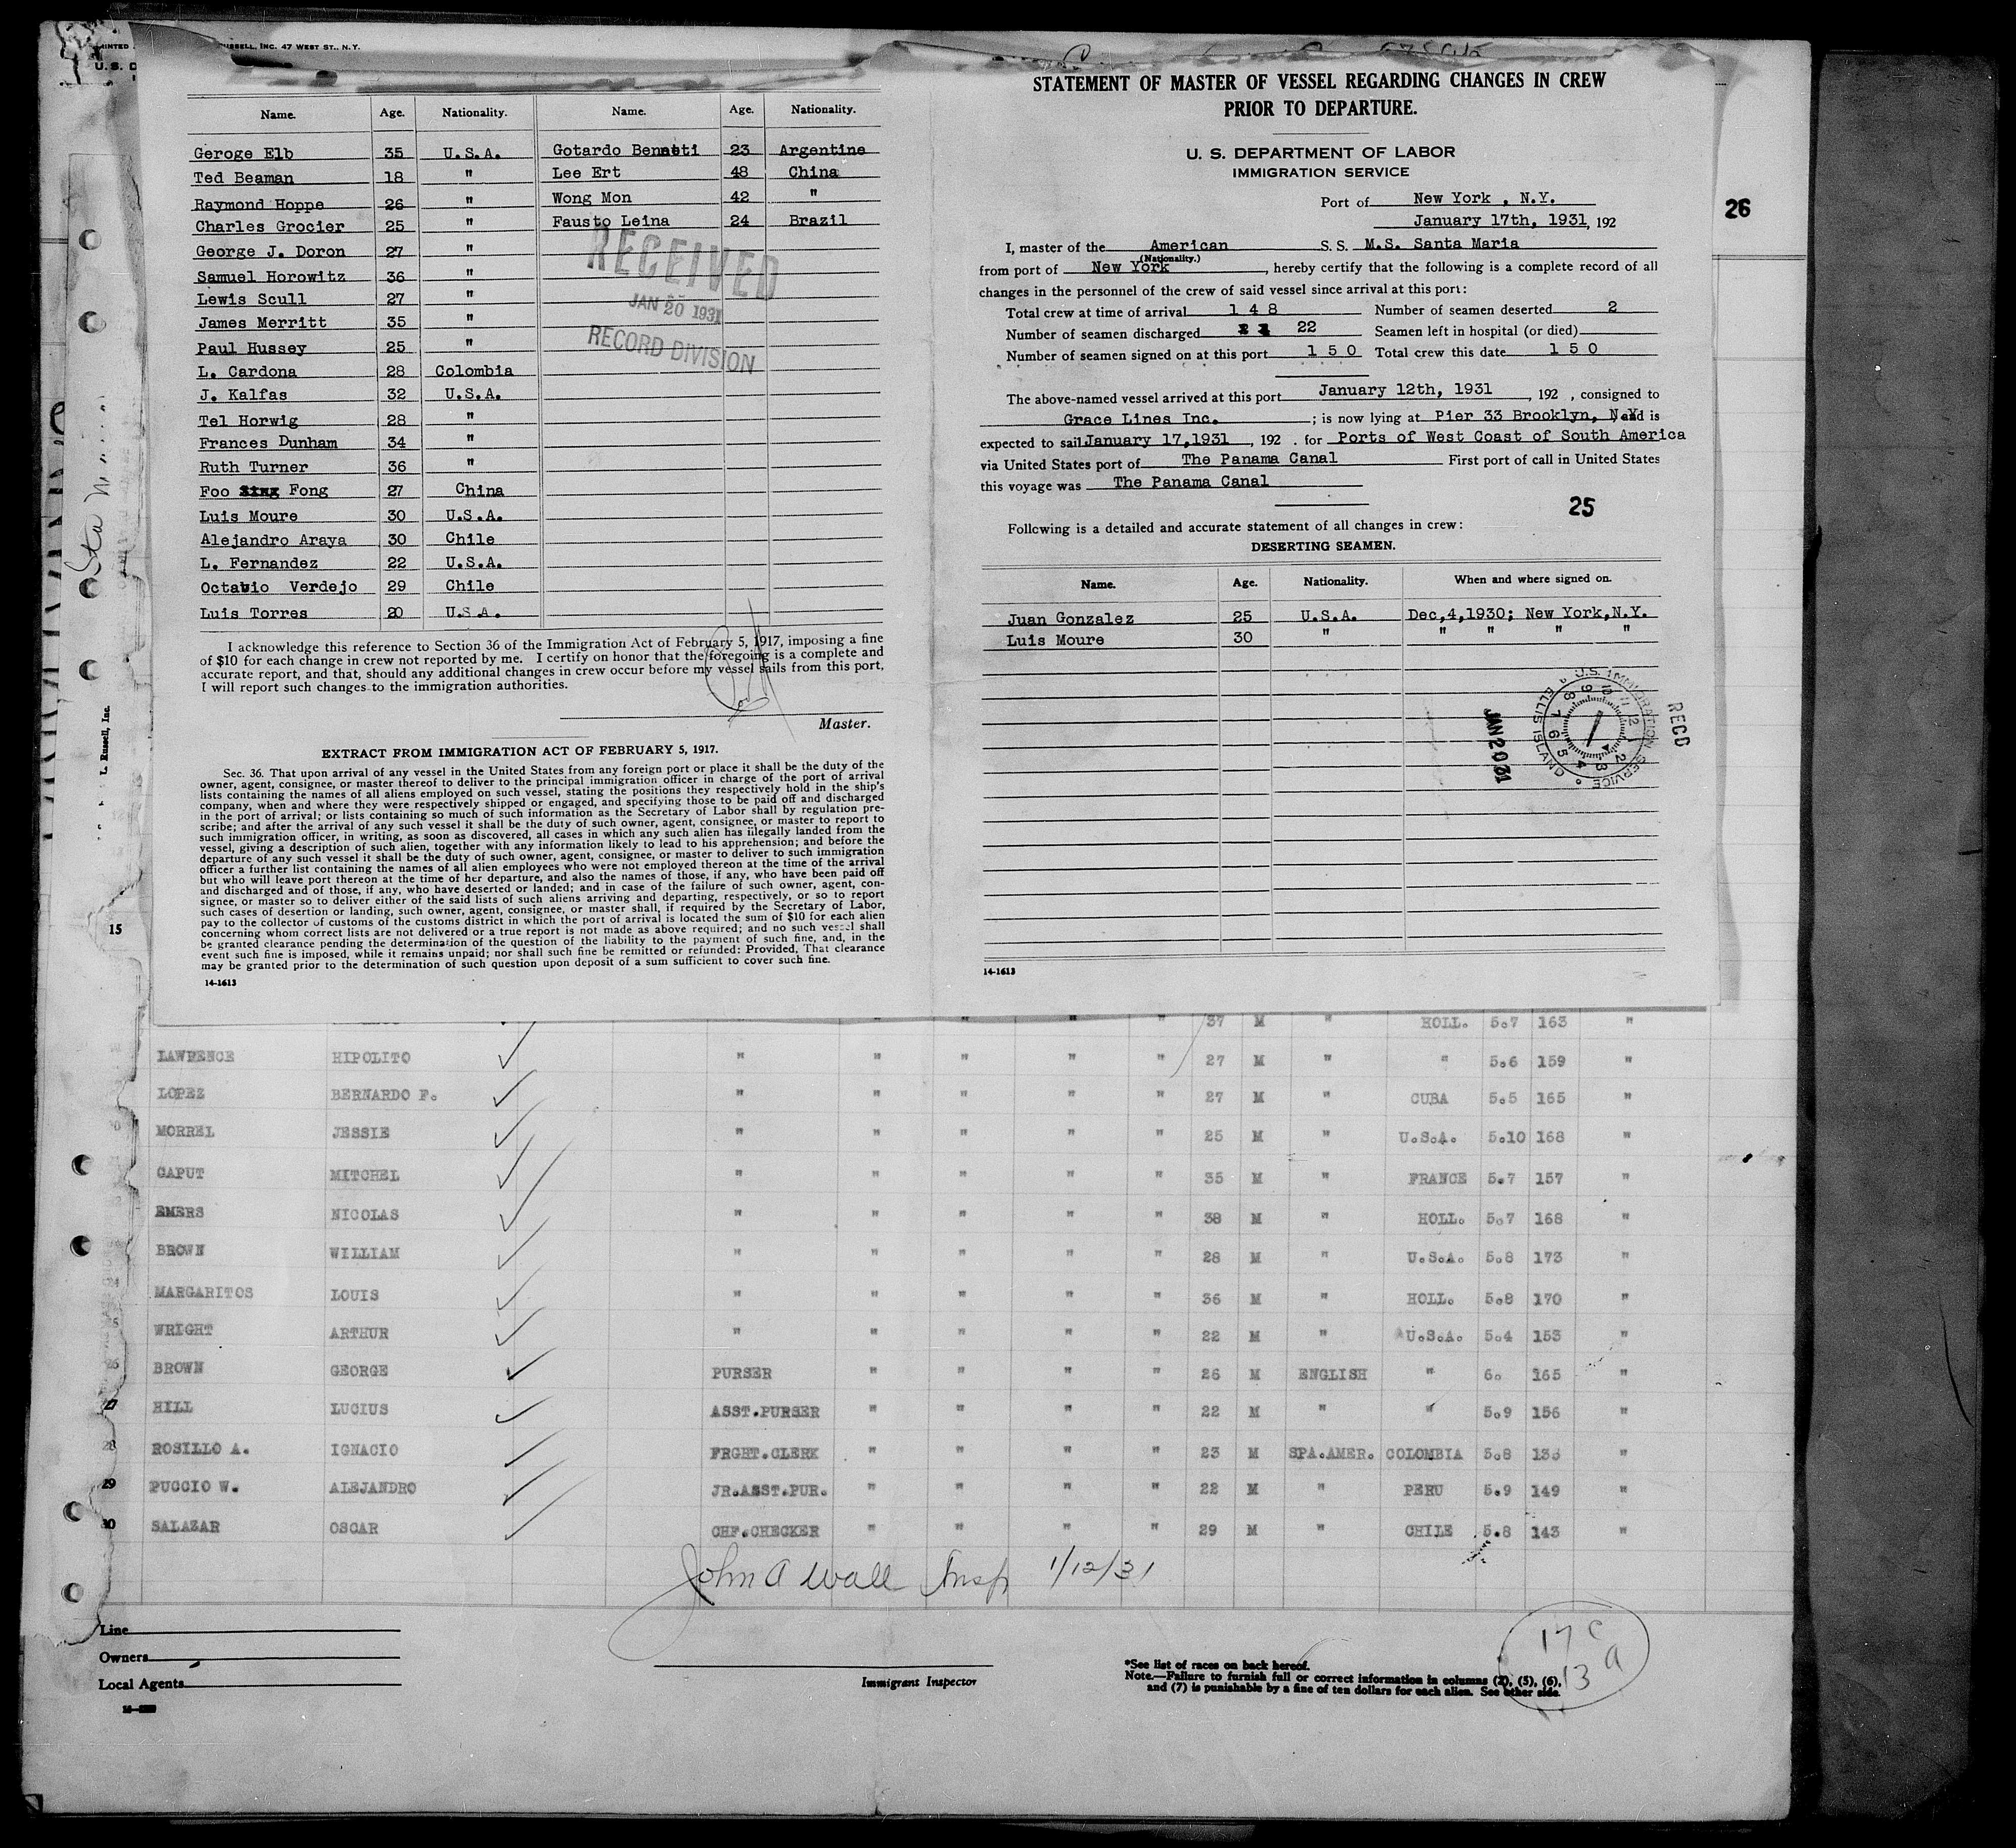 RUSSELL, INC. 47 WEST ST., N.Y.
U.S. D
Name. Age. Nationality. Name. Age. Nationality.
Geroge Elb 35 U.S.A. Gotardo Bennetti 23 Argentine
Ted Beaman 18 " Lee Ert 48 China
Raymond Hoppe 26 " Wong Mon 42 "
Charles Grocier 25 " Fausto Leina 24 Brazil
George J. Doron 27 "
Samuel Horowitz 36 "
Lewis Scull 27 "
James Merritt 35 "
Paul Hussey 25 "
L. Cardona 28 Colombia
J. Kalfas 32 U.S.A.
Tel Horwig 28 "
Frances Dunham 34 "
Ruth Turner 36 "
Foo Fong 27 China
Luis Moure 30 U.S.A.
Alejandro Araya 30 Chile
L. Fernandez 22 U.S.A.
Octavio Verdejo 29 Chile
Luis Torres 20 U.S.A.
RECEIVED
JAN 20 1931
RECORD DIVISION
I acknowledge this reference to Section 36 of the Immigration Act of February 5, 1917, imposing a fine
of $10 for each change in crew not reported by me. I certify on honor that the foregoing is a complete and
accurate report, and that, should any additional changes in crew occur before my vessel sails from this port,
I will report such changes to the immigration authorities.
Master.
EXTRACT FROM IMMIGRATION ACT OF FEBRUARY 5, 1917.
Sec. 36. That upon arrival of any vessel in the United States from any foreign port or place it shall be the duty of the
owner, agent, consignee, or master thereof to deliver to the principal immigration officer in charge of the port of arrival
lists containing the names of all aliens employed on such vessel, stating the positions they respectively hold in the ship's
company, when and where they were respectively shipped or engaged, and specifying those to be paid off and discharged
in the port of arrival; or lists containing so much of such information as the Secretary of Labor shall by regulation pre-
scribe; and after the arrival of any such vessel it shall be the duty of such owner, agent, consignee, or master to report to
such immigration officer, in writing, as soon as discovered, all cases in which any such alien has illegally landed from the
vessel, giving a description of such alien, together with any information likely to lead to his apprehension; and before the
departure of any such vessel it shall be the duty of such owner, agent, consignee, or master to deliver to such immigration
officer a further list containing the names of all alien employees who were not employed thereon at the time of the arrival
but who will leave port thereon at the time of her departure, and also the names of those, if any, who have been paid off
and discharged and of those, if any, who have deserted or landed; and in case of the failure of such owner, agent, con-
signee, or master so to deliver either of the said lists of such aliens arriving and departing, respectively, or so to report
such cases of desertion or landing, such owner, agent, consignee, or master shall, if required by the Secretary of Labor,
pay to the collector of customs of the customs district in which the port of arrival is located the sum of $10 for each alien
concerning whom correct lists are not delivered or a true report is not made as above required; and no such vessel shall
be granted clearance pending the determination of the question of the liability to the payment of such fine, and, in the
event such fine is imposed, while it remains unpaid; nor shall such fine be remitted or refunded: Provided, That clearance
may be granted prior to the determination of such question upon deposit of a sum sufficient to cover such fine.
14-1613
STATEMENT OF MASTER OF VESSEL REGARDING CHANGES IN CREW
PRIOR TO DEPARTURE.
U. S. DEPARTMENT OF LABOR
IMMIGRATION SERVICE
Port of New York , N.Y.
January 17th, 1931, 192
26
I, master of the American S. S. M.S. Santa Maria
(Nationality.)
from port of New York , hereby certify that the following is a complete record of all
changes in the personnel of the crew of said vessel since arrival at this port:
Total crew at time of arrival 1 4 8 Number of seamen deserted 2
Number of seamen discharged 22 Seamen left in hospital (or died)
Number of seamen signed on at this port 1 5 0 Total crew this date 1 5 0
The above-named vessel arrived at this port January 12th, 1931 , 192 , consigned to
Grace Lines Inc. ; is now lying at Pier 33 Brooklyn, N.Y. and is
expected to sail January 17,1931 , 192 . for Ports of West Coast of South America
via United States port of The Panama Canal First port of call in United States
this voyage was The Panama Canal
25
Following is a detailed and accurate statement of all changes in crew:
DESERTING SEAMEN.
Name. Age. Nationality. When and where signed on.
Juan Gonzalez 25 U.S.A. Dec,4,1930; New York,N.Y.
Luis Moure 30 " " " " "
U.S. IMMIGRATION SERVICE ELLIS ISLAND
RECD
JAN 20 31
14-1613
L. Russell, Inc.
15
37 M " HOLL. 5.7 163 "
LAWRENCE HIPOLITO " " " " " 27 M " " 5.6 159 "
LOPEZ BERNARDO F. " " " " " 27 M " CUBA 5.5 165 "
MORREL JESSIE " " " " " 25 M " U.S.A. 5.10 168 "
CAPUT MITCHEL " " " " " 35 M " FRANCE 5.7 157 "
EMERS NICOLAS " " " " " 38 M " HOLL. 5.7 168 "
BROWN WILLIAM " " " " " 28 M " U.S.A. 5.8 173 "
24 MARGARITOS LOUIS " " " " " 36 M " HOLL. 5.8 170 "
5 WRIGHT ARTHUR " " " " " 22 M " U.S.A. 5.4 153 "
26 BROWN GEORGE PURSER " " " " 26 M ENGLISH " 6. 165 "
27 HILL LUCIUS ASST.PURSER " " " " 22 M " " 5.9 156 "
28 ROSILLO A. IGNACIO FRGHT.CLERK " " " " 23 M SPA.AMER. COLOMBIA 5.8 "
29 PUCCIO W. ALEJANDRO JR.ASST.PUR. " " " " 22 M " PERU 5.9 149 "
30 SALAZAR OSCAR CHF.CHECKER " " " " 29 M " CHILE 5.8 143 "
John A Wall Insp 1/12/31
Line
Owners
Local Agents
Immigrant Inspector
*See list of races on back hereof.
Note.—Failure to furnish full or correct information in columns (2), (5), (6),
and (7) is punishable by a fine of ten dollars for each alien. See other side.
17 c
13 a